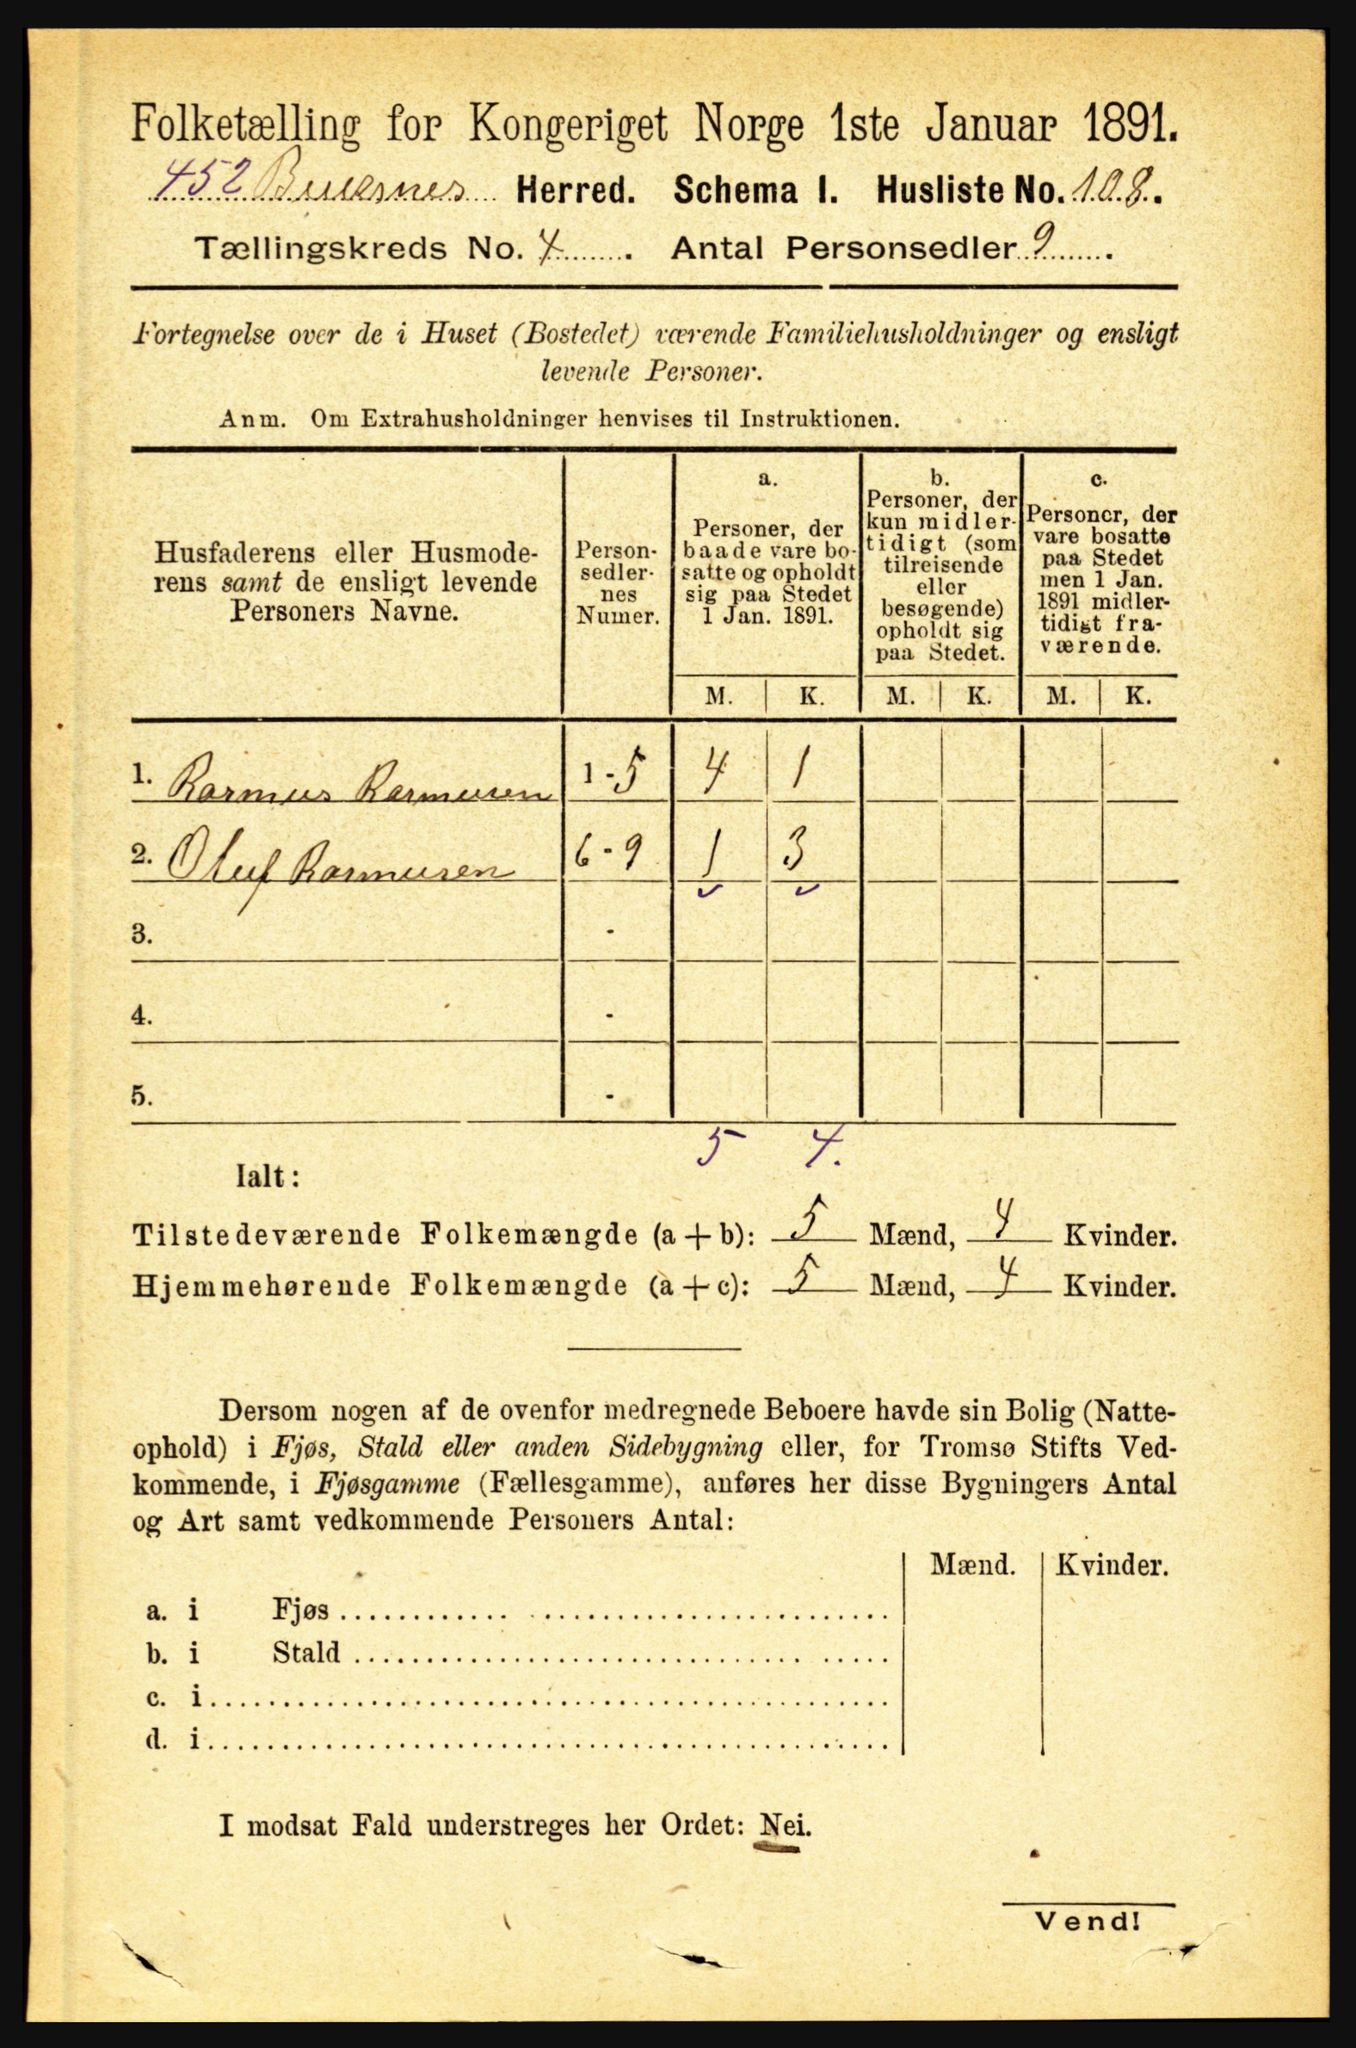 Folketælling for Kongeriget Norge 1ste Januar 1891.
452 Buksnes Herred. Schema I. Husliste No. 108.
Tællingskreds No. 4. Antal Personsedler 9.
Fortegnelse over de i Huset (Bostedet) værende Familiehusholdninger og ensligt
levende Personer.
Anm. Om Extrahusholdninger henvises til Instruktionen.
Husfaderens eller Husmode-
rens samt de ensligt levende
Personers Navne.
Person-
sedler-
nes
Numer.
a.
Personer, der
baade vare bo-
satte og opholdt
sig paa Stedet
1 Jan. 1891.
b.
Personer, der
kun midler-
tidigt (som
tilreisende
eller
besøgende)
opholdt sig
paa Stedet.
c.
Personer, der
vare bosatte
paa Stedet
men 1 Jan.
1891 midler-
tidigt fra-
værende.
M. K. M. K. M. K.
1. Rasmus Rasmusen 1-5 4 1
2. Oluf Rasmusen 6-9 1 3
3. -
4. -
5. -
5 4.
Ialt:
Tilstedeværende Folkemængde (a + b): 5 Mænd, 4 Kvinder.
Hjemmehørende Folkemængde (a + c): 5 Mænd, 4 Kvinder.
Dersom nogen af de ovenfor medregnede Beboere havde sin Bolig (Natte-
ophold) i Fjøs, Stald eller anden Sidebygning eller, for Tromsø Stifts Ved-
kommende, i Fjøsgamme (Fællesgamme), anføres her disse Bygningers Antal
og Art samt vedkommende Personers Antal:
Mænd. Kvinder.
a. i Fjøs
b. i Stald
c. i
d. i
I modsat Fald understreges her Ordet: Nei.
Vend!